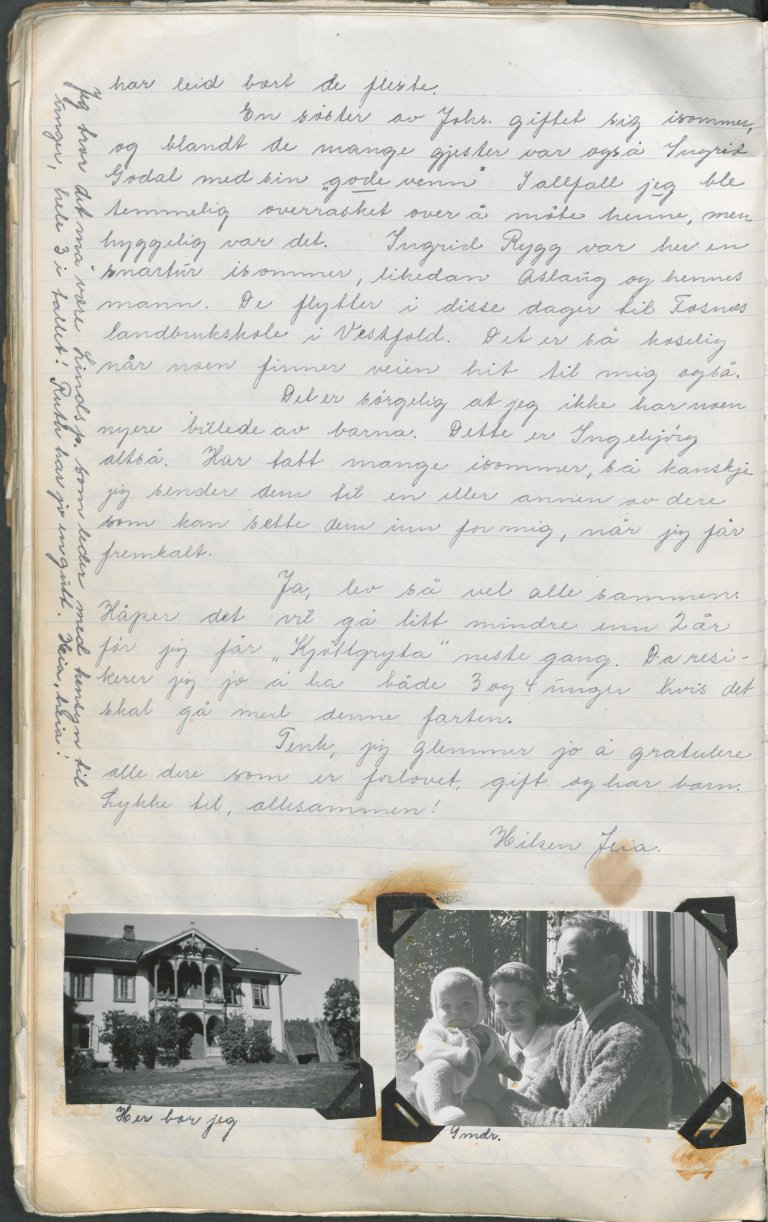 har leid bort de fleste.
En søster av Johs. giftet sig isommer,
og blandt de mange gjester var også Ingrid
Godal med sin „gode venn" Iallfall jeg ble
temmelig overrasket over å møte henne, men
hyggelig var det. Ingrid Rygg var her en
snartur isommer, likedan Aslaug og hennes
mann. De flytter i disse dager til Fosnes
landbrukskole i Vestfold. Det er så koselig
når noen finner veien hit til mig også.
Det er sørgelig at jeg ikke har noen
nyere billede av barna. Dette er Ingebjørg
altså. Har tatt mange isommer, så kanskje
jeg sender dem til en eller annen av dere
som kan sette dem inn for mig, når jeg får
fremkalt.
Ja, lev så vel alle sammen.
Håper det vil gå litt mindre enn 2 år
før jeg får „Kjøttgryta" neste gang. Da resi-
kerer jeg jo å ha både 3 og 4 unger hvis det
skal gå med denne farten.
Tenk, jeg glemmer jo å gratulere
alle dere som er forlovet, gift og har barn.
Lykke til, allesammen!
Hilsen Jeia.
Jeg tror det må være Lindis p. som leder med hensyn til
unger, hele 3 i tallet! Ruth har jo en gutt. Heia, heia!
Her bor jeg
9 mdr.